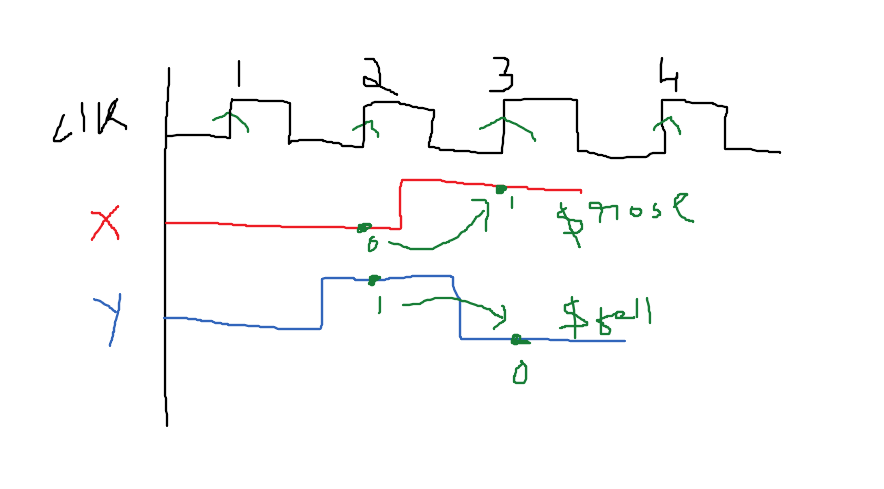 1 2 3 4
clk
X 0 1 $rose
Y 1 $fell
0